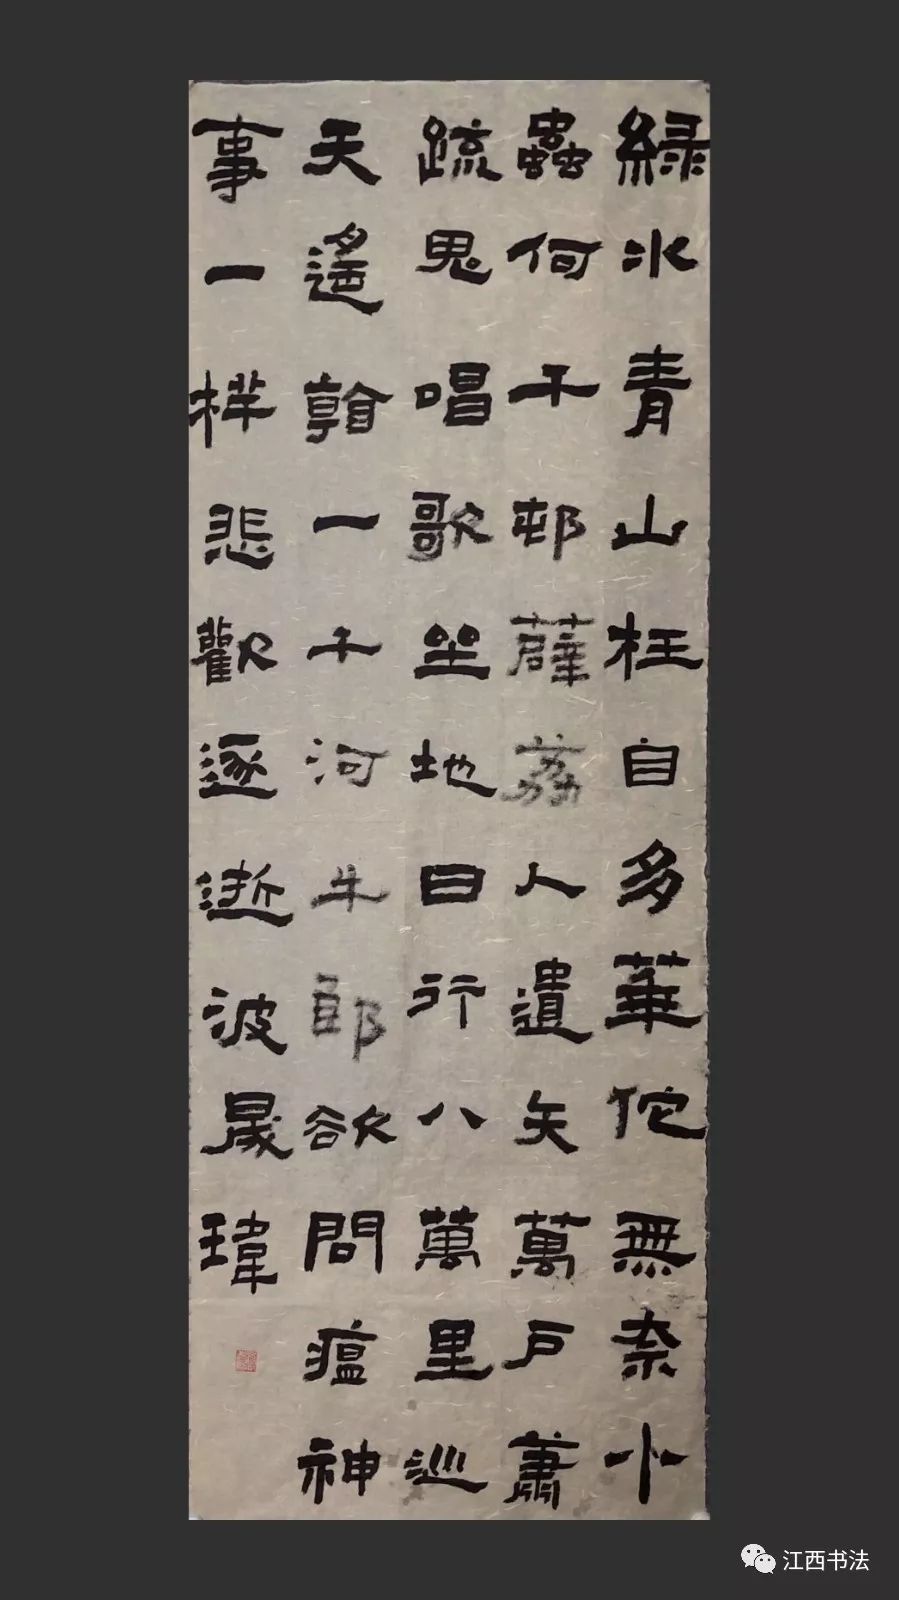 綠水青山枉自多華佗無奈小
蟲何千邨薜荔人遺矢萬戶蕭
疏鬼唱歌坐地日行八萬里巡
天遙看一千河牛郎欲問瘟神
事一样悲歡逐逝波晟瑋
江西书法